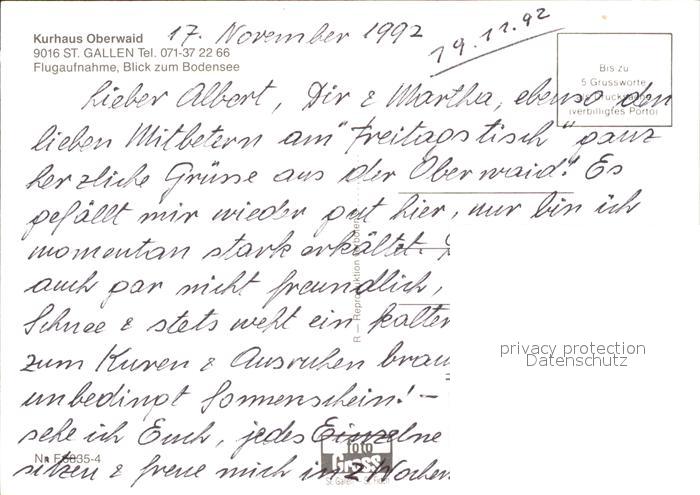 Kurhaus Oberwaid
9016 ST. GALLEN Tel. 071-37 22 66
Flugaufnahme, Blick zum Bodensee
17. November 1992
19.11.92
Bis zu
5 Grussworte
(verbilligtes Porto)
Lieber Albert, Dir & Martha, ebenso den
lieben Mitbetern am "Freitagstisch" ganz
herzliche Grüsse aus der Oberwaid! Es
gefällt mir wieder gut hier, nur bin ich
momentan stark erkältet.
auch gar nicht freundlich,
Schnee & stets weht ein kalter
zum Kuren & Ausruhen brau
unbedingt Sonnenschein! –
sehe ich Euch, jedes Einzelne
sitzen & freue mich in 2 Wochen
R — Reproduktion verboten
privacy protection
Datenschutz
foto
Gross
St. Gallen